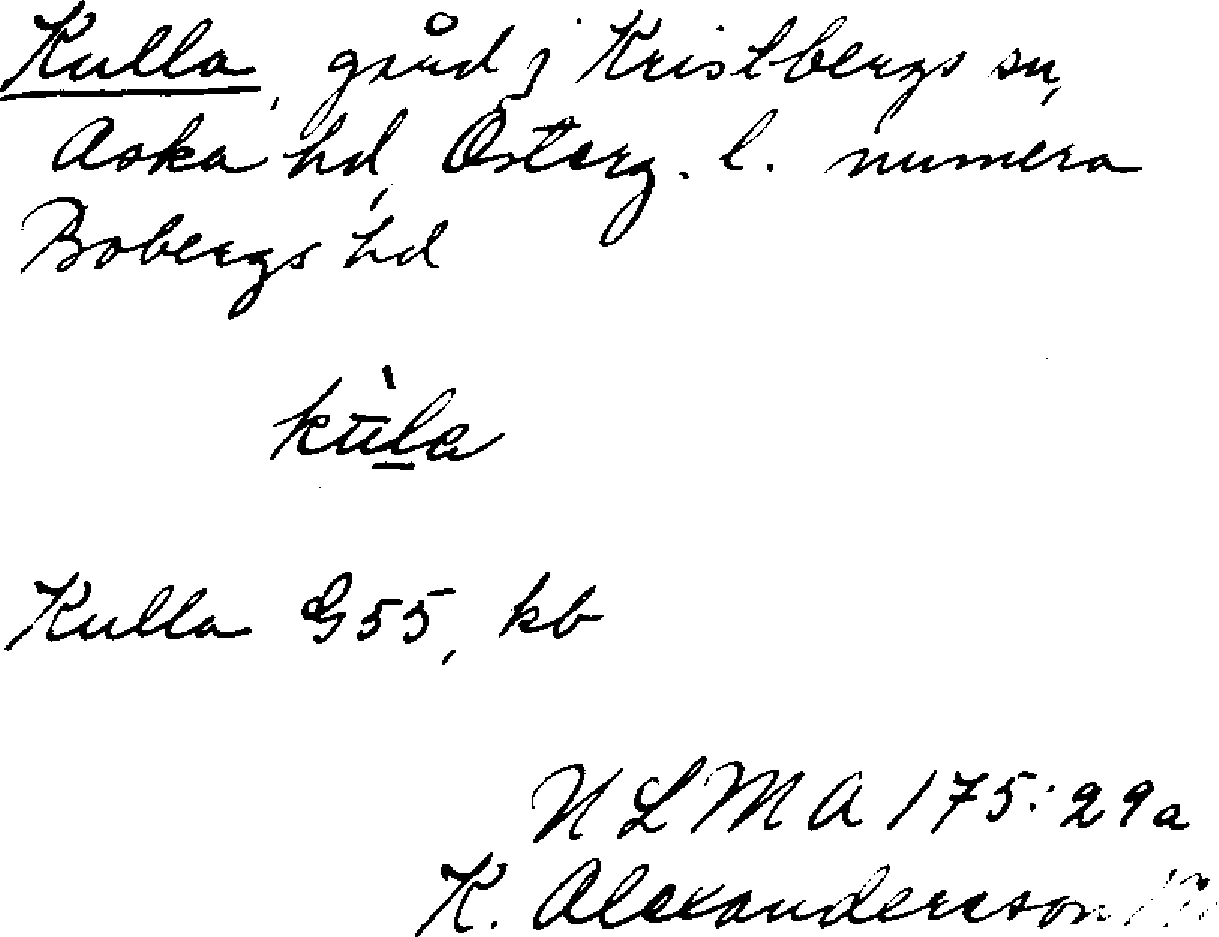 Kulla, gård i Kristbergs sn,
Aska hd, Österg. l. numera
Bobergs hd
kùl̲a
Kulla G55, kb
ULMA 175:29a
K. Alexandersson